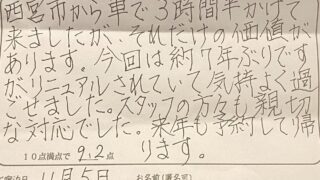 西宮市から車で3時間半かけて
来ましたが、それだけの価値が
あります。今回は約7年ぶりです
が、リニュアルされていて気持よく過
ごせました。スタッフの方々も親切
な対応でした。来年も予約して帰
ります。
10点満点で 9.2点
11月5日 お名前(匿名可)